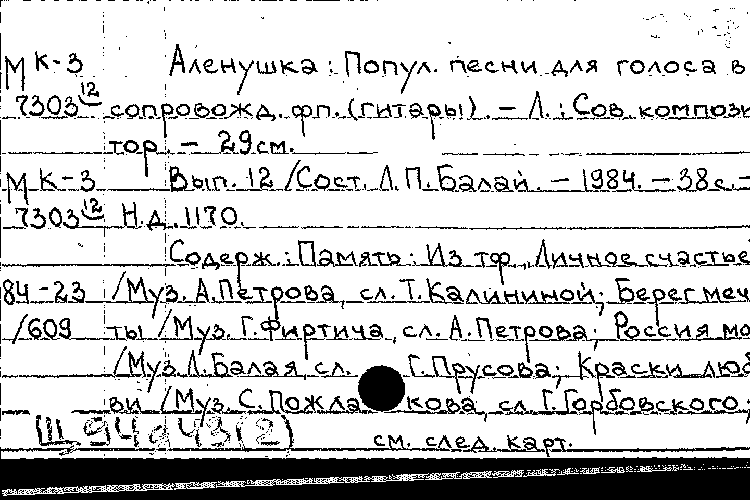 МК-3 Аленушка : Попул. песни для голоса в
7303 12 сопровожд. фп. (гитары). – Л. : Сов. компози
тор. – 29см.
МК-3 Вып. 12 /Сост. Л.П.Балай. – 1984. – 38с. –
7303 12 Н.д. 1170.
Содерж.: Память : Из тф „Личное счастье
84-23 /Муз. А.Петрова, сл. Т.Калининой; Берег меч
/609 ты /Муз. Г.Фиртича, сл. А.Петрова; Россия мо
/Муз. Л.Балая, сл. Г.Прусова; Краски люб
ви /Муз. С.Пожлакова, сл. Г.Горбовского;
см. след. карт.